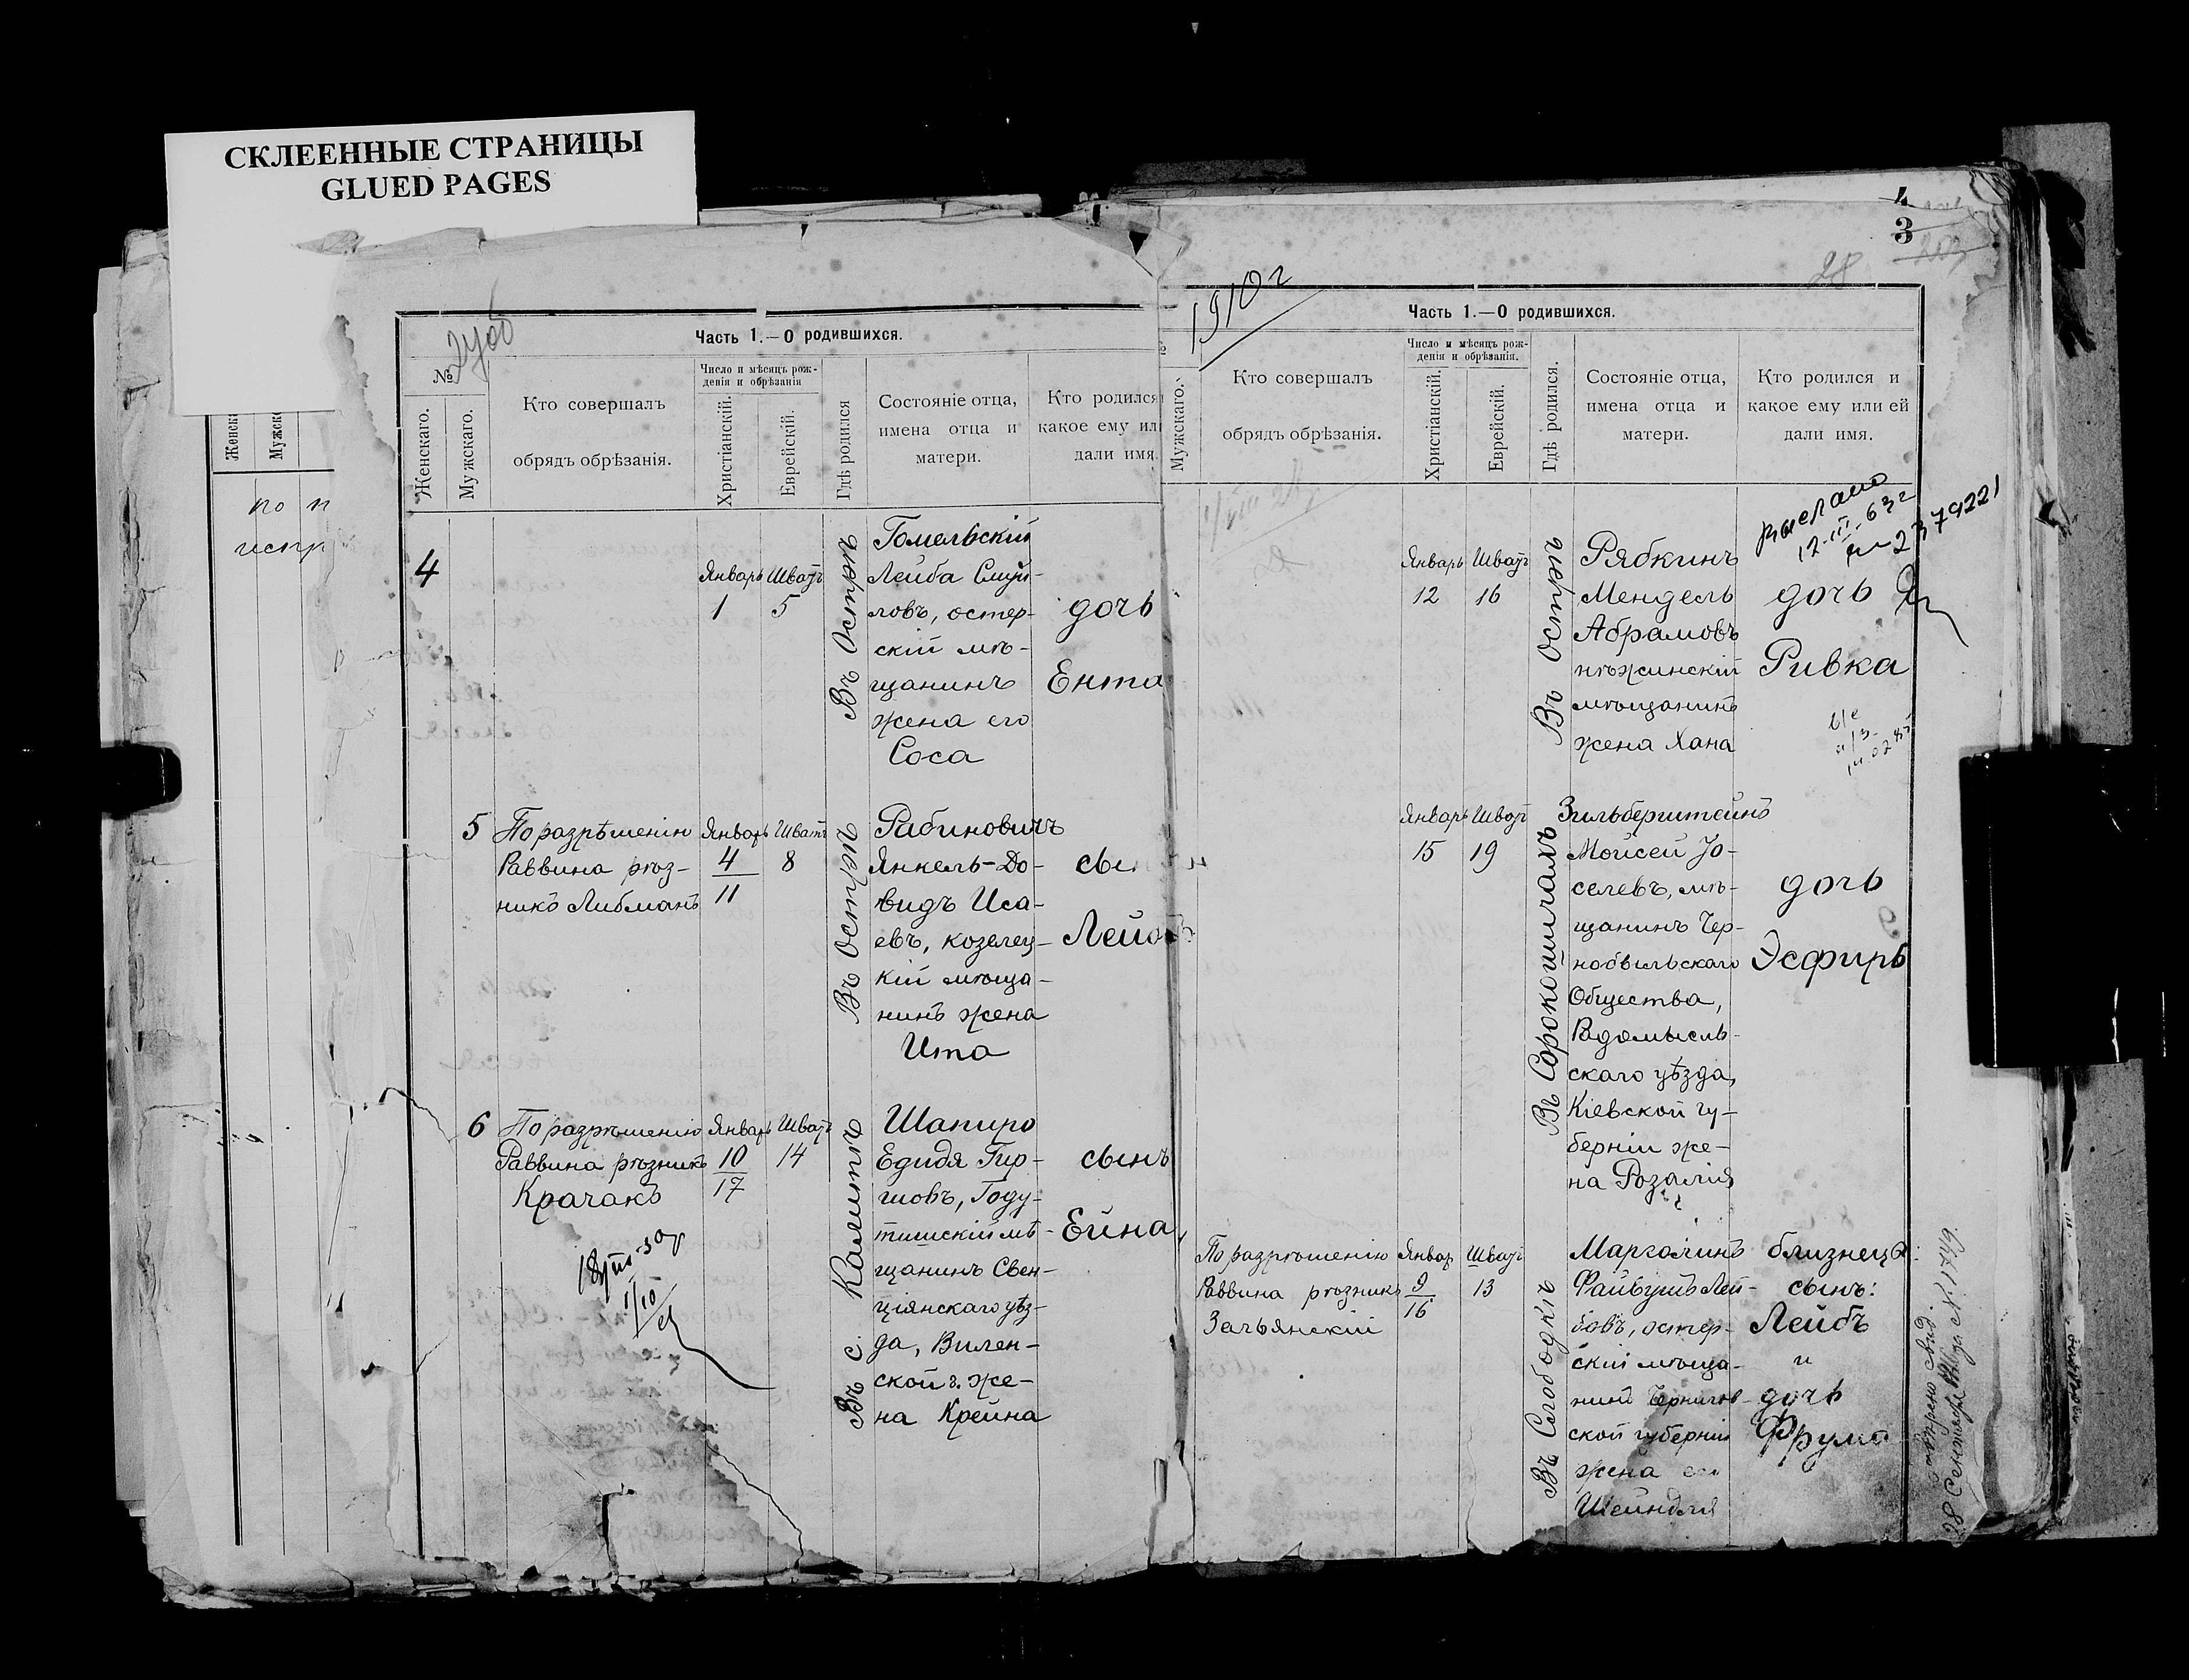 СКЛЕЕННЫЕ СТРАНИЦЫ
GLUED PAGES
Женска
Мужско
по п
испр
Часть 1.—О родившихся.
№
Женскаго.
Мужскаго.
Кто совершалъ
обрядъ обрѣзанія.
Число и мѣсяцъ рож-
денія и обрѣзанія
Христіанскій.
Еврейскій.
Гдѣ родился
Состояніе отца,
имена отца и
матери.
Кто родился
какое ему ил
дали имя
4
Январь Шватъ
1 5
Въ Острѣ
Гомельскій
Лейба Смуй-
ловъ, остер-
скій мѣ-
щанинъ
жена его
Соса
дочь
Ента
5
По разрѣшенію
Раввина рѣз-
никъ Либманъ
Январь Шватъ
4 8
11
Въ Острѣ
Рабиновичъ
Янкель-До-
видъ Иса-
евъ, козелец-
кій мѣща-
нинъ жена
Ита
сы
Лейбъ
6
По разрѣшенію
Раввина рѣзникъ
Крачакъ
Январь Шватъ
10 14
17
Въ с. Калитѣ
Шапиро
Едидя Гир-
шовъ, Году-
тишскій мѣ-
щанинъ Свен-
ціянскаго уѣз-
да, Вилен-
ской г. же-
на Крейна
сынъ
Ейна
4
3
28
1910 г
Часть 1.—О родившихся.
Мужскаго.
Кто совершалъ
обрядъ обрѣзанія.
Число и мѣсяцъ рож-
денія и обрѣзанія.
Христіанскій.
Еврейскій.
Гдѣ родился.
Состояніе отца,
имена отца и
матери.
Кто родился и
какое ему или ей
дали имя.
Январь Шватъ
12 16
Въ Острѣ
Рябкинъ
Мендель
Абрамовъ
нѣжинскій
мѣщанинъ
жена Хана
выслано
12-III-63 г
2379221
дочь
Ривка
Январь Шватъ
15 19
Въ Сорокошичахъ
Зильберштейнъ
Мойсей Іо-
селевъ, мѣ-
щанинъ Чер-
нобыльскаго
Общества,
Радомысль-
скаго уѣзда,
Кіевской гу-
берніи же-
на Розалія
дочь
Эсфирь
По разрѣшенію
Раввина рѣзникъ
Зельянскій
Январ Шватъ
9 13
16
Въ Слободкѣ
Марголинъ
Файвушъ Лей-
бовъ, остер-
скій мѣща-
нинъ Чернигов-
ской губерніи
жена его
Шейндля
близнецы:
сынъ:
Лейбъ
и
дочь
Фрума
28 Сентября № 1749.